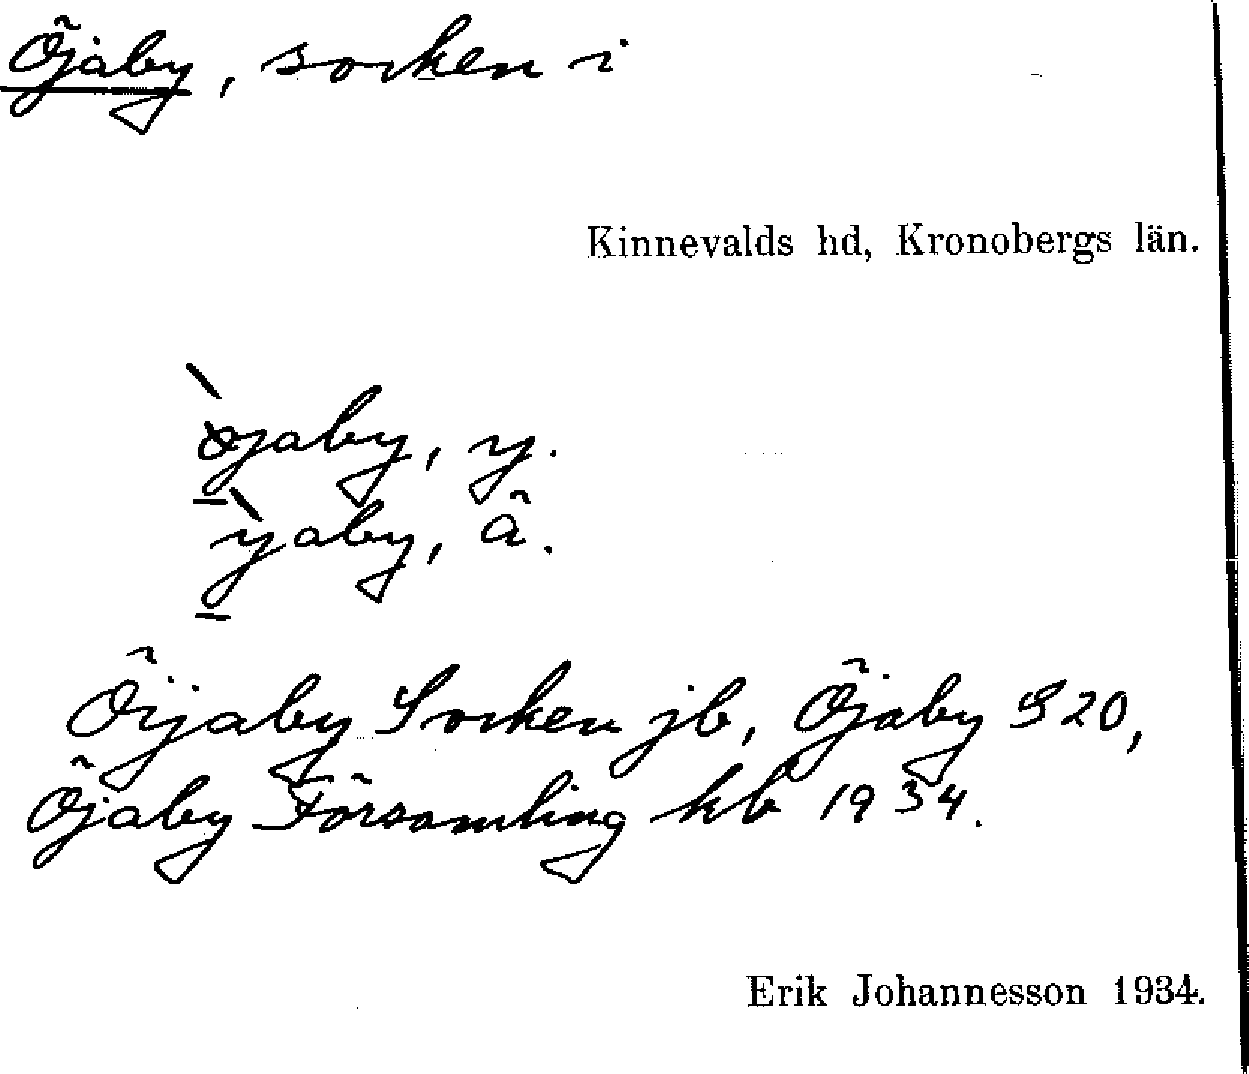 Öjaby, socken i
Kinnevalds hd, Kronobergs län.
jaby, y.
yaby, ä.
Öijaby Socken jb, Öjaby S 20,
Öjaby Församling kb 1934.
Erik Johannesson 1934.